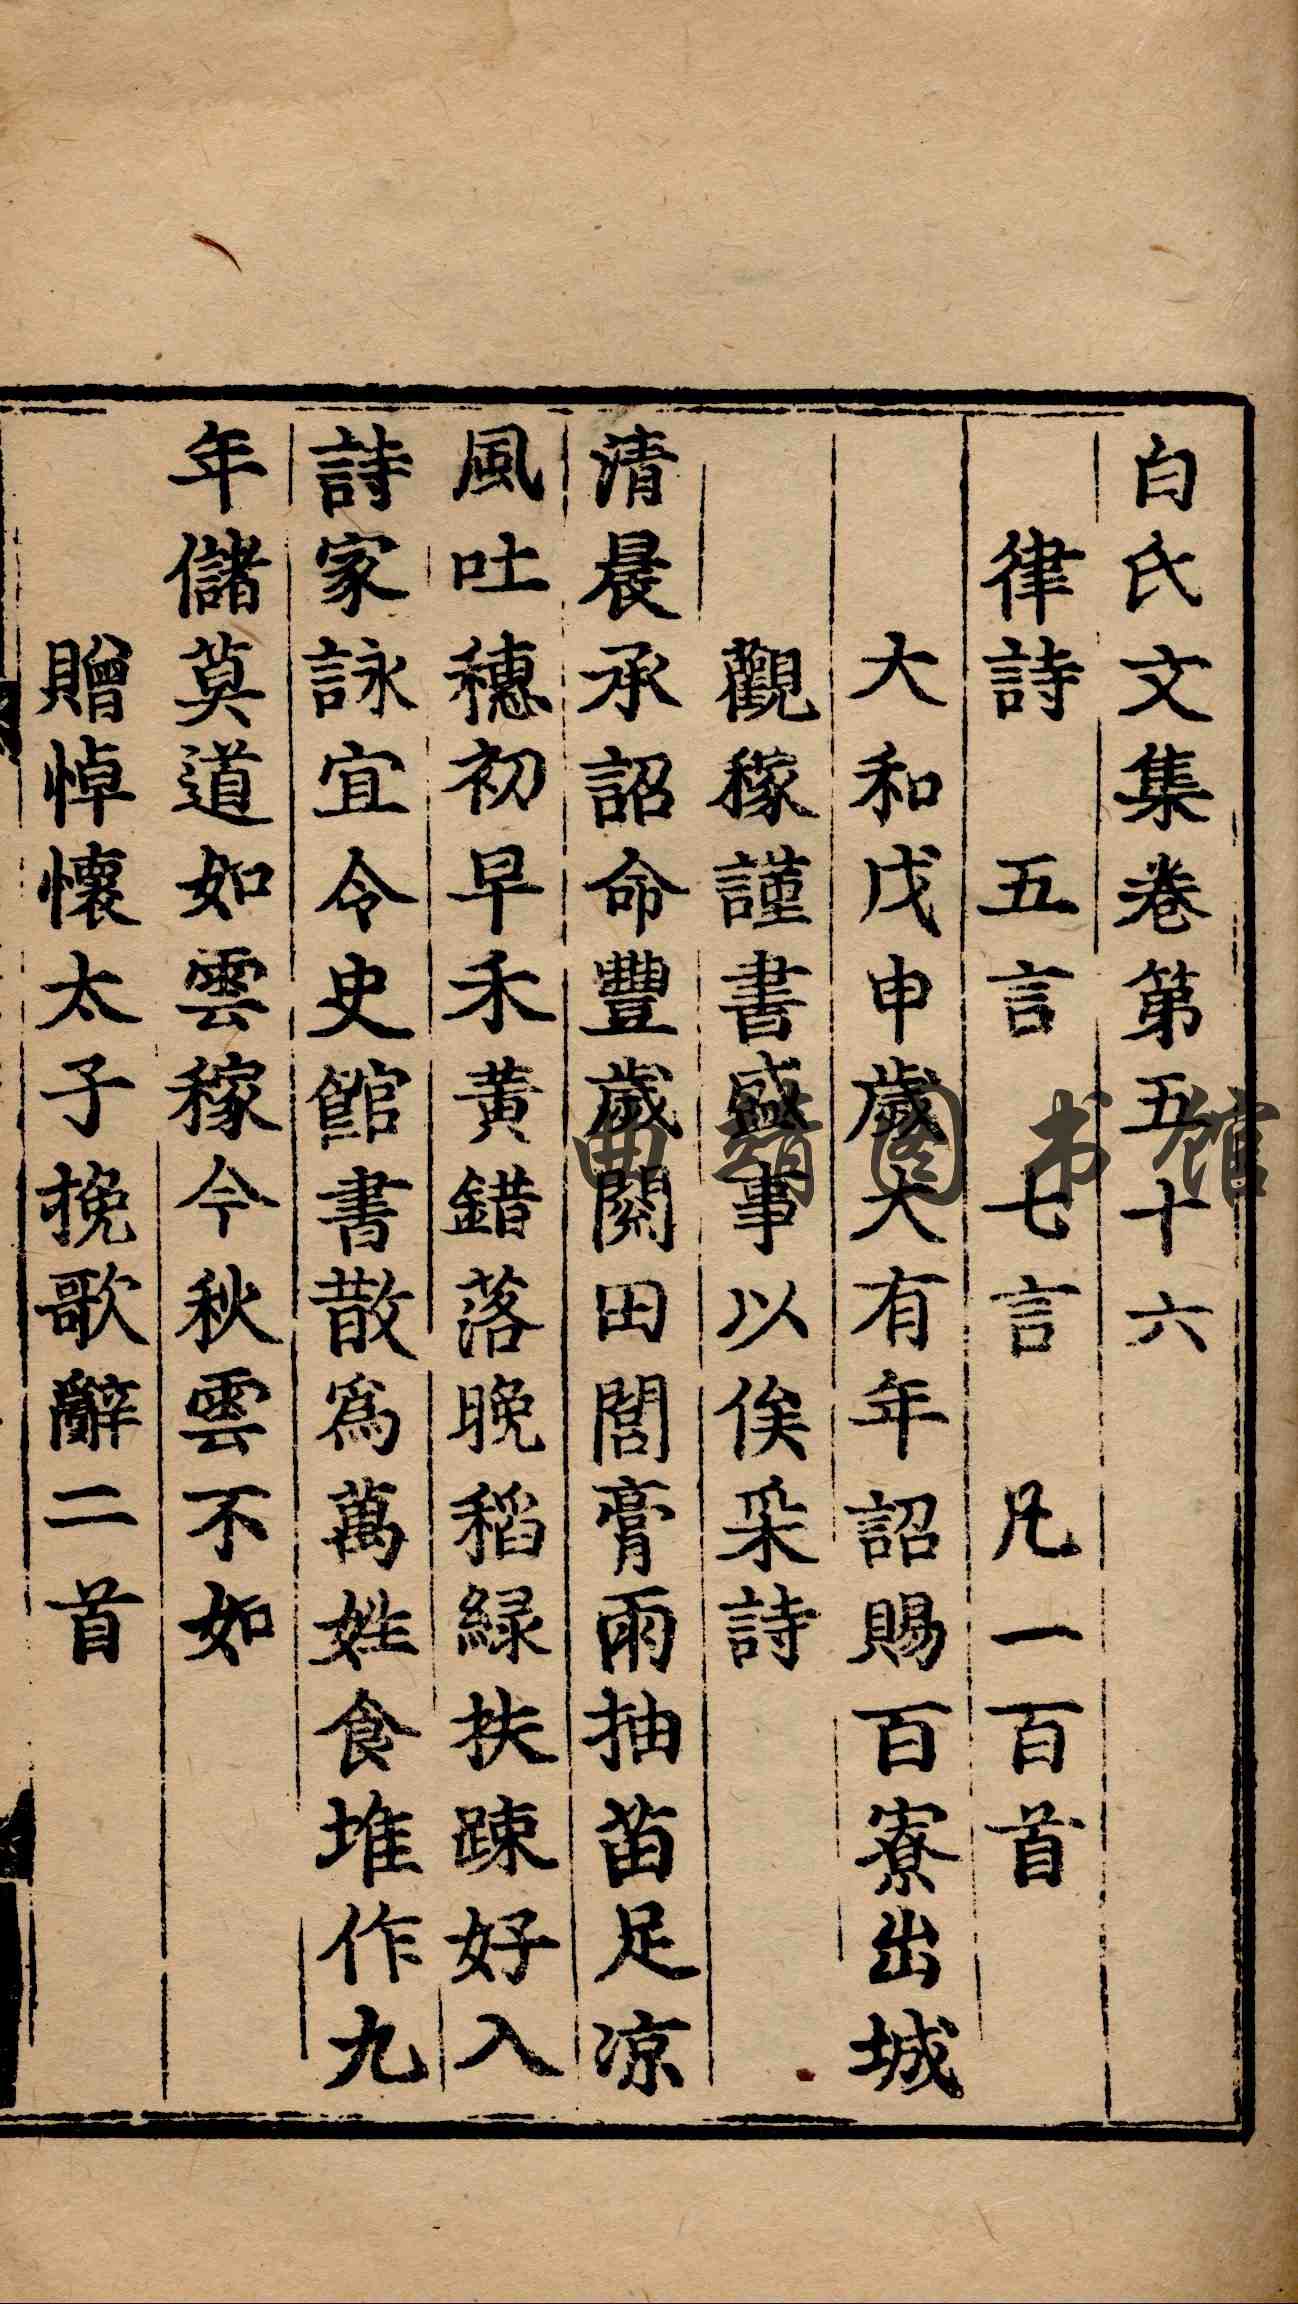 白氏文集卷第五十六
律詩 五言 七言 凡一百首
大和戊申歲大有年詔賜百寮出城
觀稼謹書盛事以俟采詩
清晨承詔命豐歲閱田閭膏雨抽苗足凉
風吐穗初早禾黃錯落晚稻緑扶踈好入
詩家詠宜令史館書散爲萬姓食堆作九
年儲莫道如雲稼今秋雲不如
贈悼懷太子挽歌辭二首
图书馆